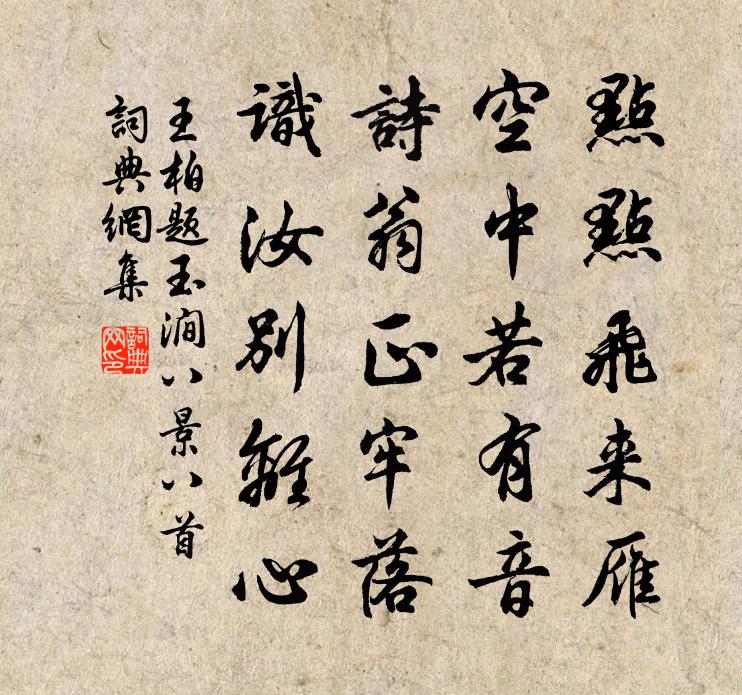 點點飛来雁
空中若有音
詩翁正牢落
識汝別離心
王柏题玉澗八景八首
詞典網集
詞典网印